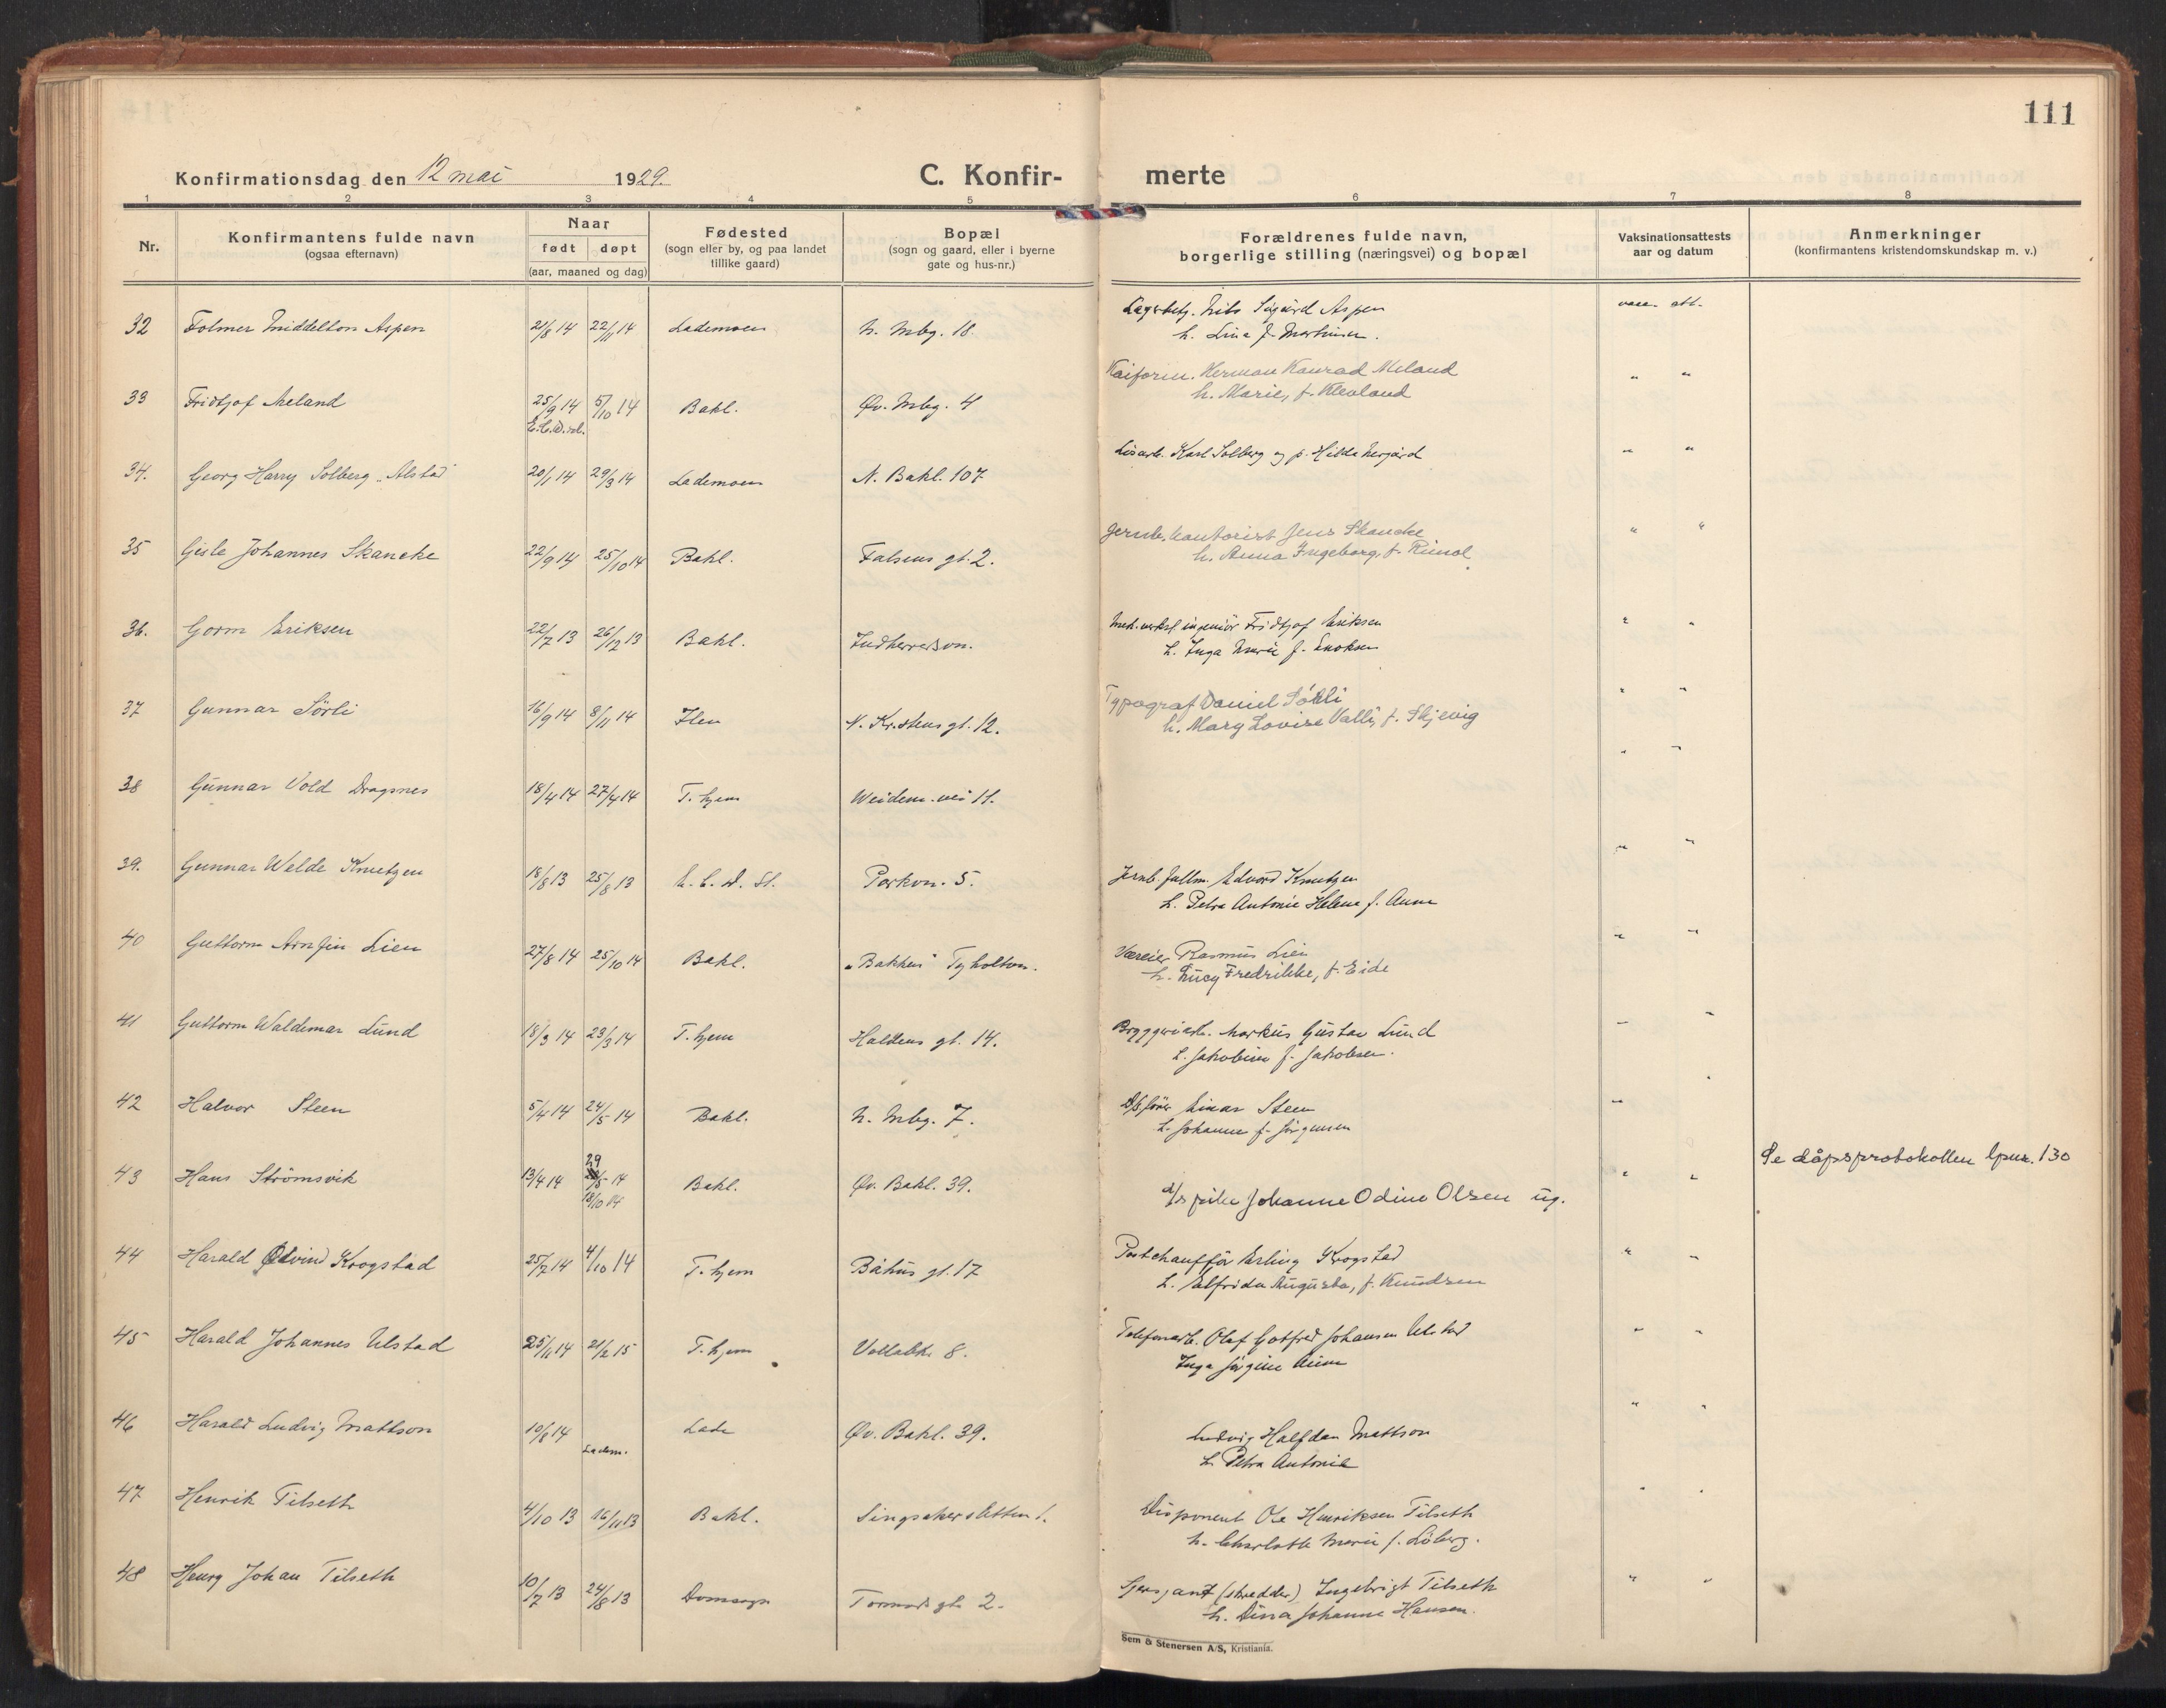 111
Konfirmationsdag den 12 mai 1929.
C. Konfir- merte
1 2 3 4 5 6 7 8
Nr.
Konfirmantens fulde navn
(ogsaa efternavn)
Naar
født døpt
(aar, maaned og dag)
Fødested
(sogn eller by, og paa landet
tillike gaard)
Bopæl
(sogn og gaard, eller i byerne
gate og hus-nr.)
Forældrenes fulde navn,
borgerlige stilling (næringsvei) og bopæl
Vaksinationsattests
aar og datum
Anmerkninger
(konfirmantens kristendomskundskap m. v.)
32 Folmer Middelton Aspen 21/8 14 22/11 14 Lademoen N. Mbg. 18.
Nils Sigurd Aspen
h. Lina f. Martinsen.
33 Fridtjof Meland 25/9 14 5/10 14 Bakl. Øv. Mbg. 4
Herman Konrad Meland " "
h. Marie, f. Klevland
34. Georg Harry Solberg Alstad 20/1 14 29/3 14 Lademoen N. Bakl. 107
Karl Solberg og p. Hilda " "
35 Gisle Johannes Skancke 22/9 14 25/10 14 Bakl. Falsens gt. 2.
Jernb. kontorist Jens Skancke " "
h. Anna Ingeborg, f. Rimol
36. Gorm Eriksen 22/7 13 26/12 13 Bakl. Indherredsvn.
Mek. verkst ingeniör Fridtjof Eriksen " "
h. Inga Marie f. Enoksen
37 Gunnar Sörli 16/9 14 8/11 14 Ilen N. Kristens gt. 12.
Typograf Daniel Sörli " "
h. Mary Lovise Valli, f. Skjevig
38 Gunnar Vold Dragsnes 18/4 14 27/4 14 T. hjem Weidem. vei 11. " "
39. Gunnar Welde Knutzen 18/8 13 25/8 13 E. C. D. St. Parkvn. 5.
Jernb. fullm. Edvard Knutzen " "
h. Petra Antonie Helene f. Aune
40 Guttorm Arnfin Lien 27/8 14 25/10 14 Bakl. "Bakken" Tyholtvn.
Rasmus Lien " "
h. Lucy Fredrikke, f. Eide
41 Guttorm Waldemar Lund 18/3 14 23/3 14 T. hjem Haldens gt. 14.
Bryggeriarb. Markus Gustav Lund " "
h. Jakobine f. Jakobsen.
42 Halvor Steen 5/4 14 24/5 14 Bakl. N. Mbg. 7.
Einar Steen " "
h. Johanne f. Jörgensen
43 Hans Strömsvik 13/4 14 29/5 14 Bakl. Øv. Bakl. 39.
18/10 14
Johanne Odine Olsen ug. " "
Se dåpsprotokollen 130
44 Harald Øivind Krogstad 25/7 14 4/10 14 T. hjem Båhus gt. 17
Postchaufför Erling Krogstad " "
h. Elfrida Augusta, f. Knudsen
45 Harald Johannes Ulstad 25/11 14 21/2 15 T. hjem Vollabk. 8.
Telefonarb. Olaf Gotfred Johansen Ulstad " "
Inga Jörgine Aune
46 Harald Ludvig Mattson 10/8 14 Ladem. Lade Øv. Bakl. 39.
Ludvig Halfdan Mattson " "
h. Petra Antonie
47 Henrik Tilseth 4/10 13 16/11 13 Bakl. Singsakersletten 1.
Disponent Ole Henriksen Tilseth " "
h. Charlotte Marie f. Löberg.
48 Henry Johan Tilseth 10/7 13 24/8 13 Domsogn Tormods gt. 2.
Sersjant (skredder) Ingebrigt Tilseth " "
h. Dina Johanne Hansen.
Sem & Stenersen A/S, Kristiania.